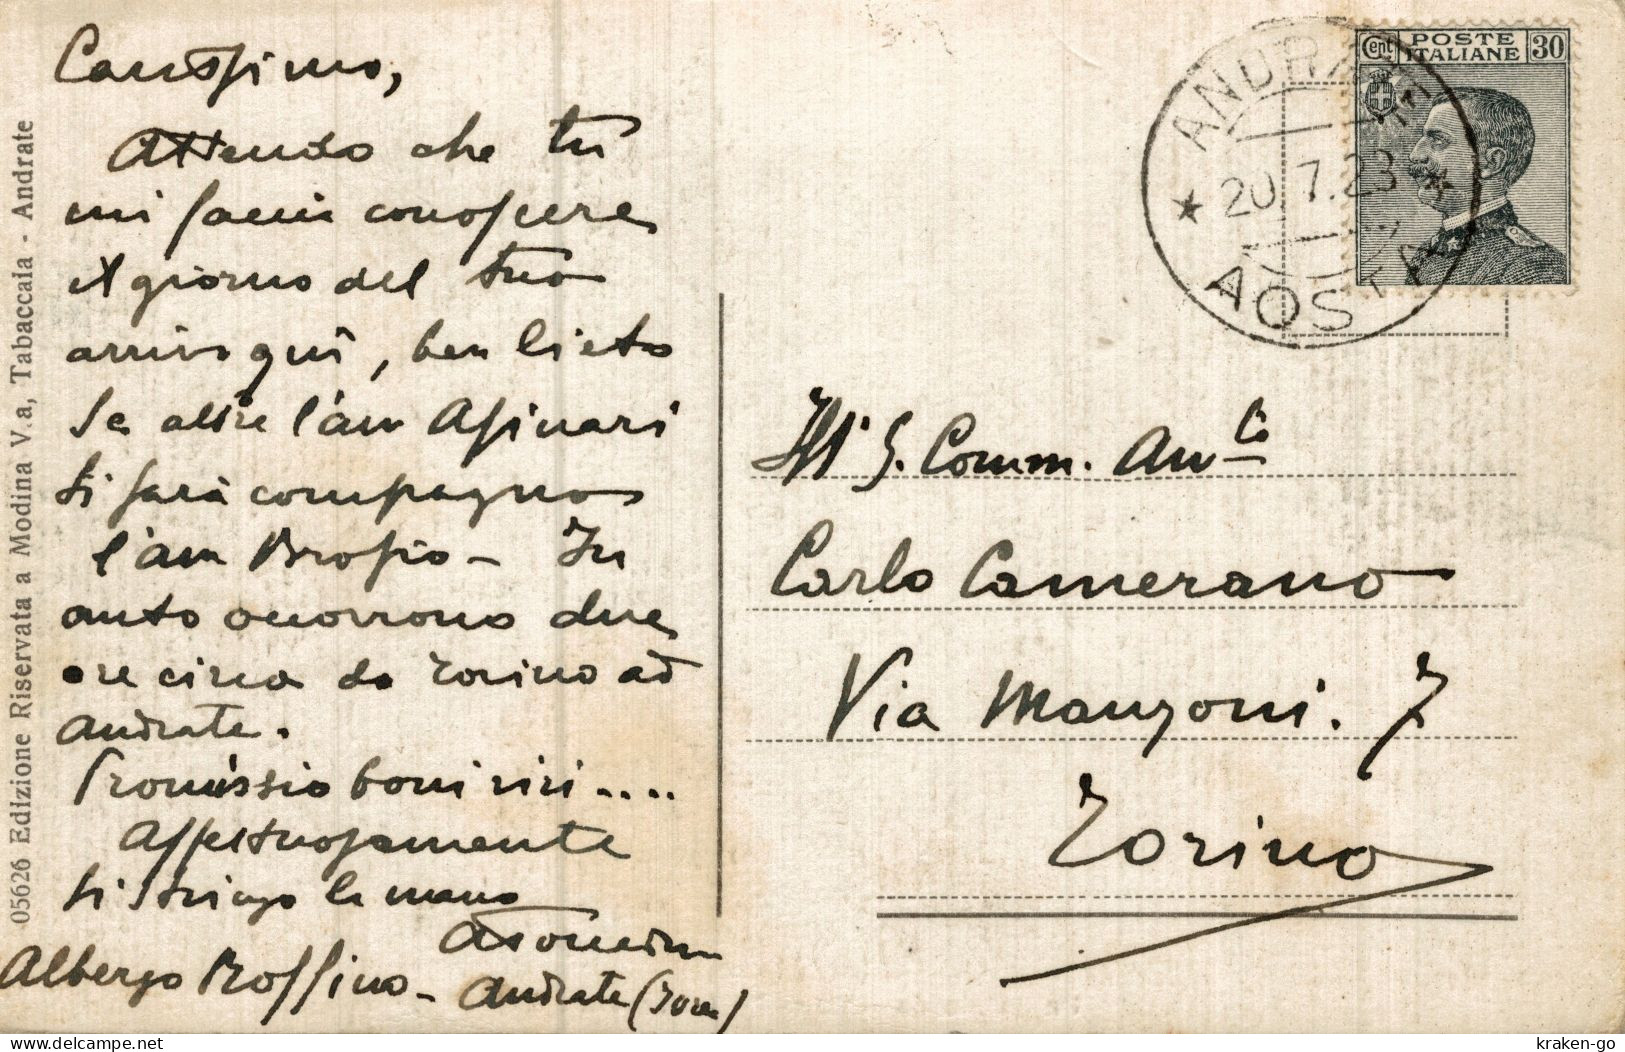 Carissimo,
Attendo che tu
mi facci conoscere
il giorno del tuo
arrivo quì, ben lieto
se altre l'am Asinari
ti farà compagno
l'am Brosio - In
auto occorrono due
ore circa da Torino ad
Andrate.
Promissio boni viri....
Affettuosamente
ti stringo la mano
Albergo Roffino - Andrate (Ivrea)
05626 Edizione Riservata a Modina V.a, Tabaccaia - Andrate
Cent POSTE ITALIANE 30
ANDRATE
* 20.7.23
AOSTA
Ill S. Comm. Avv
Carlo Camerano
Via Manzoni. 7
Torino
delcampe.net
kraken-go